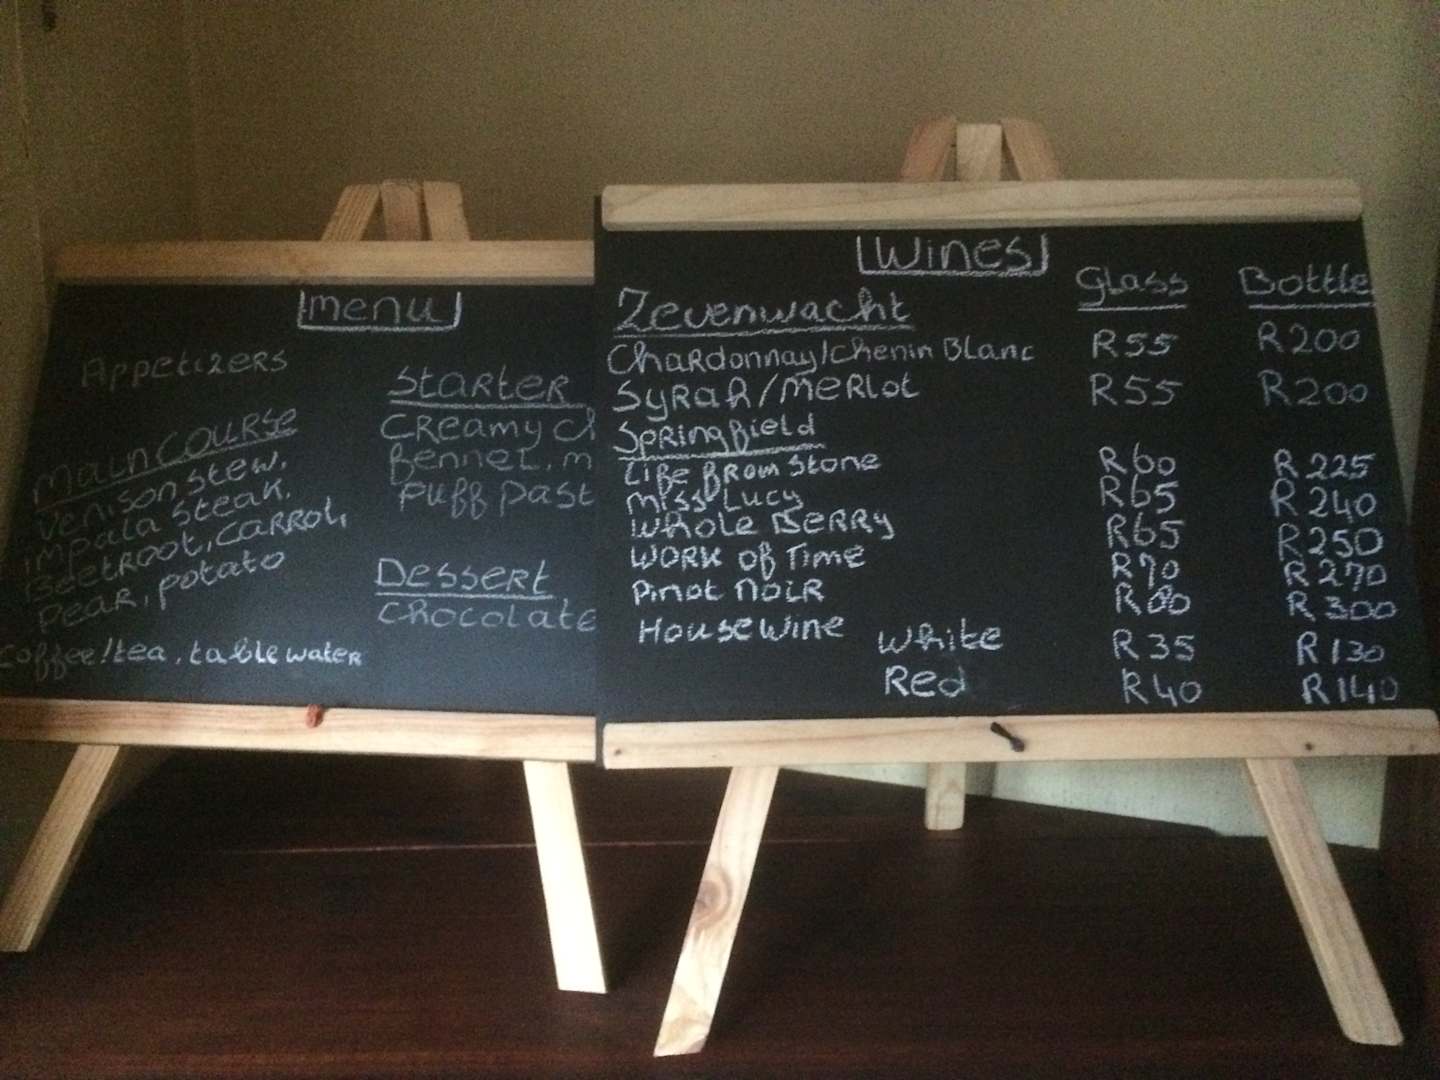 menu
Appetizers
Main Course
Venison stew,
impala steak,
Beetroot, Carrot,
Pear, potato
Coffee/tea, table water
Starter
Creamy Ch
Fennel, m
Puff past
Dessert
Chocolate
Wines
Glass Bottle
Zevenwacht
Chardonnay/Chenin Blanc R55 R200
Syrah/Merlot R55 R200
Springfield
Life from Stone R60 R225
Miss Lucy R65 R240
Whole Berry R65 R250
Work of Time R70 R270
Pinot Noir R80 R300
House Wine
White R35 R130
Red R40 R140